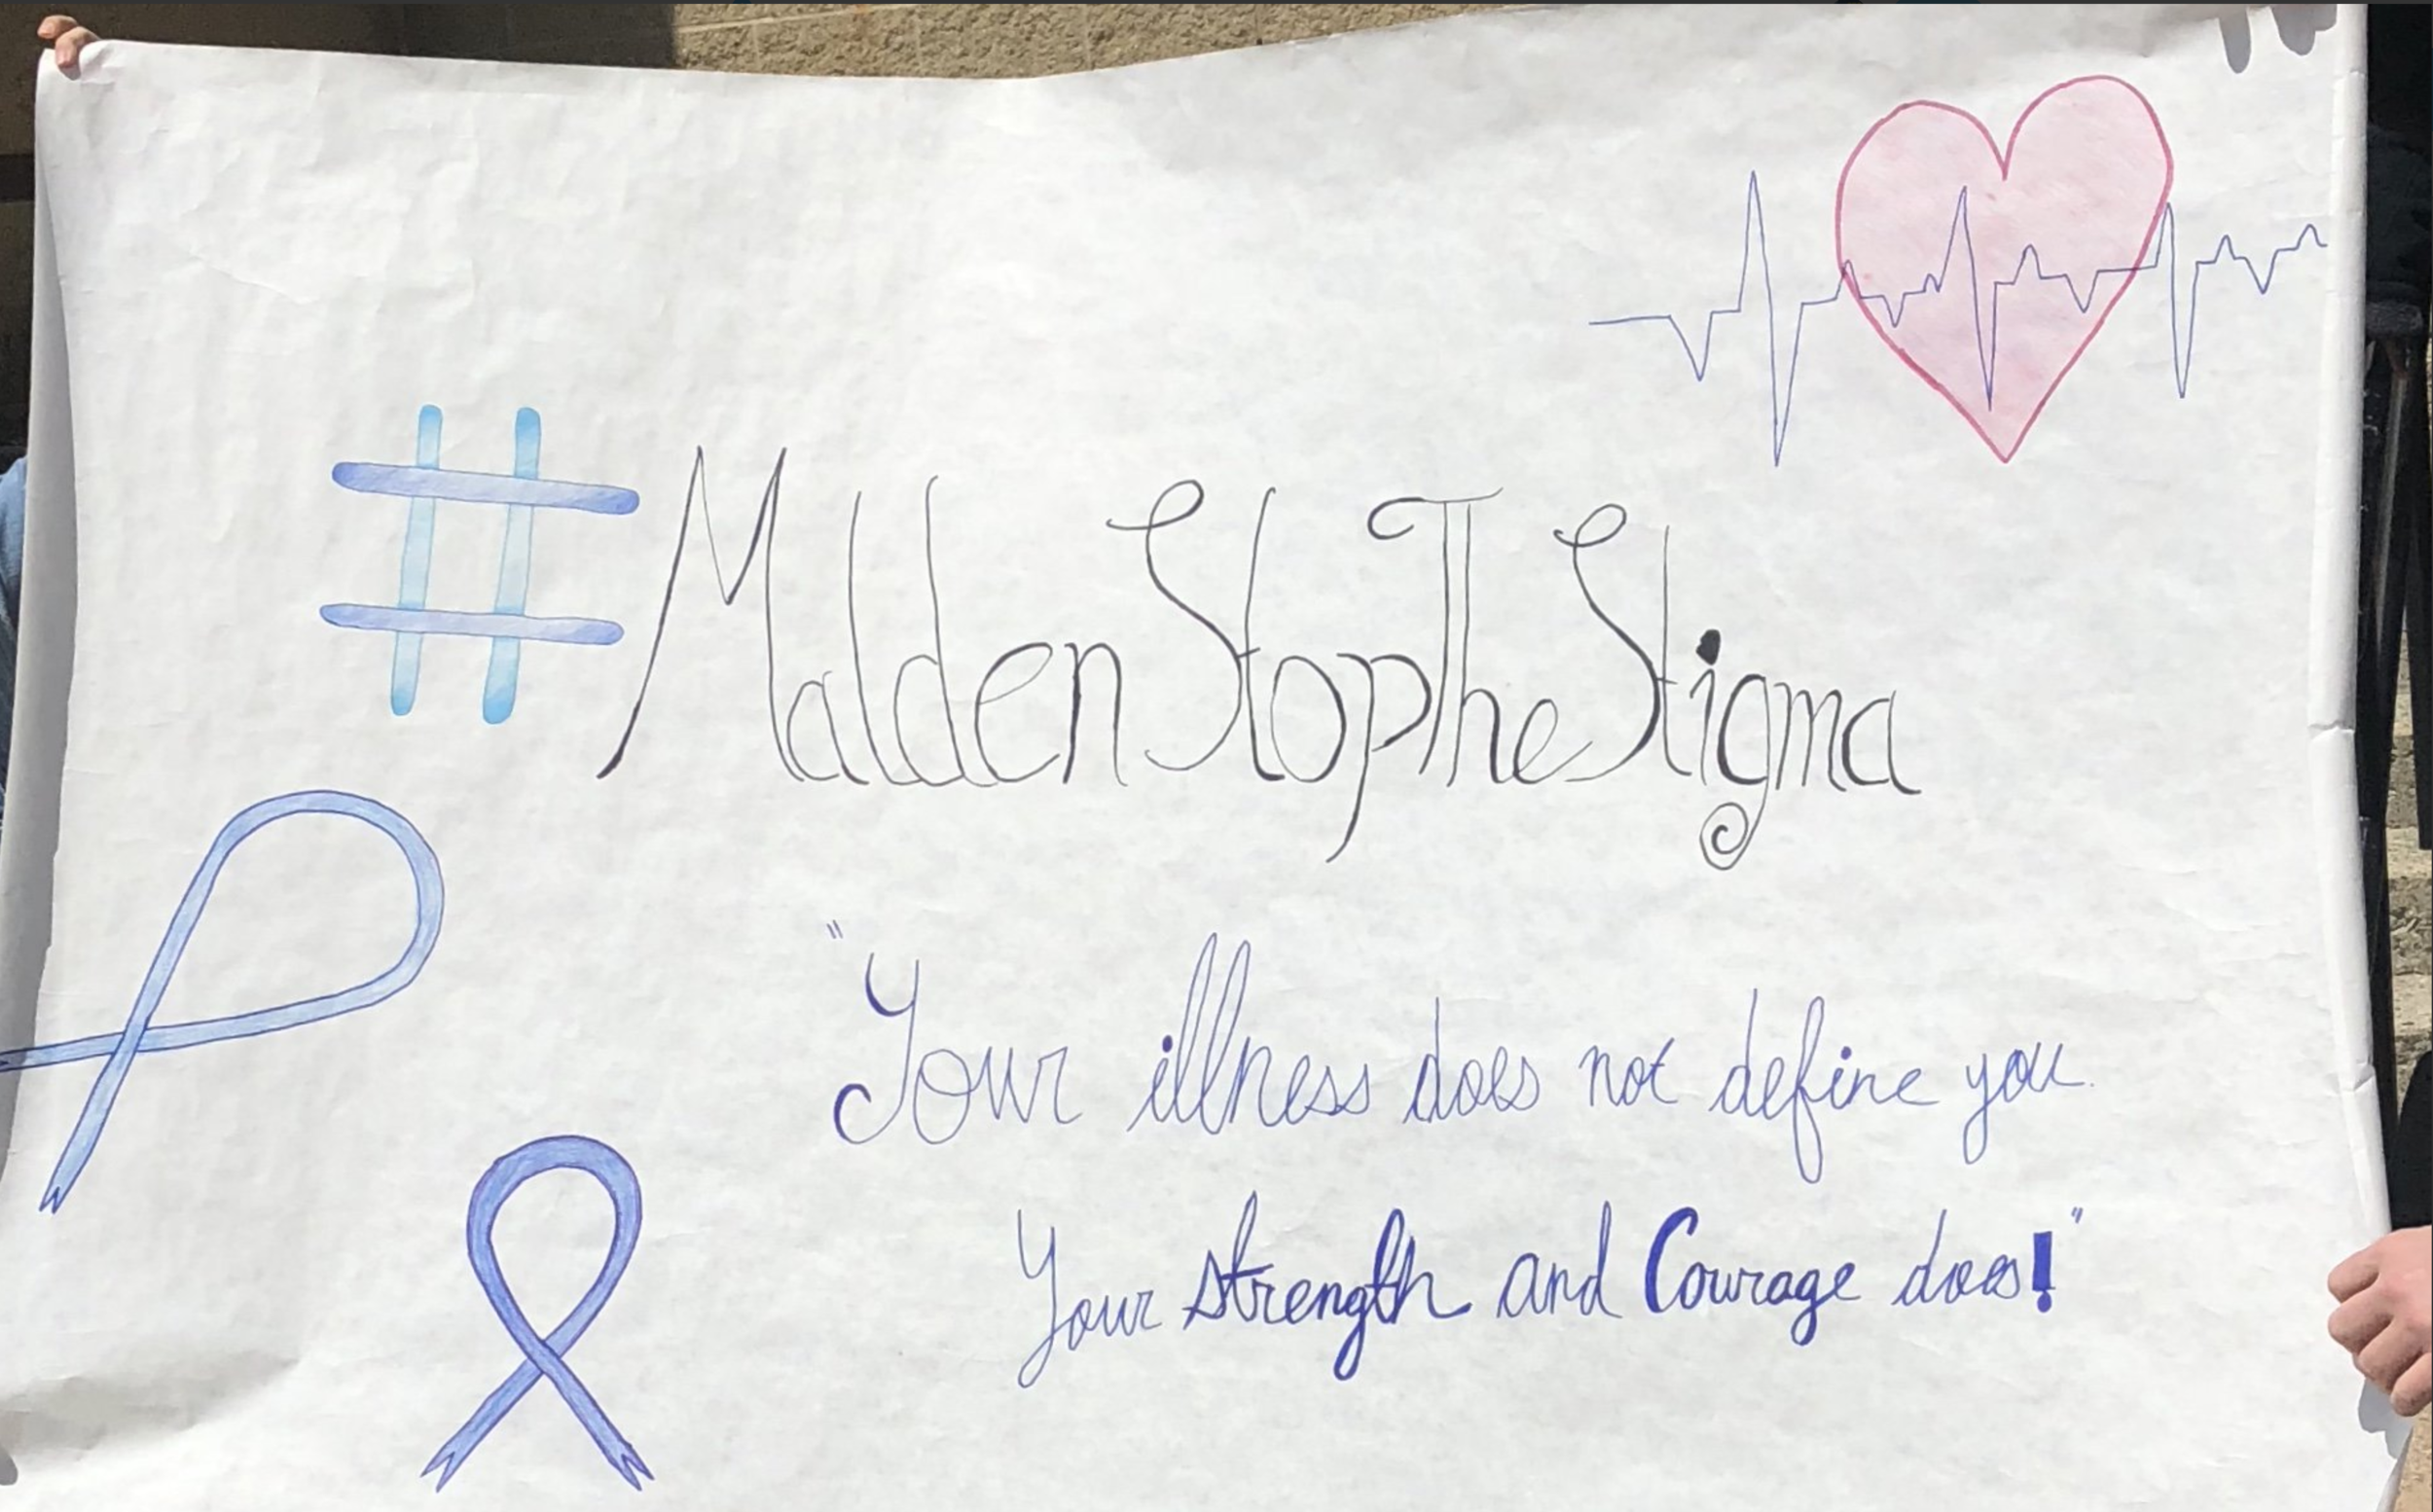 #MaldenStopTheStigma
"Your illness does not define you.
Your strength and Courage does!"